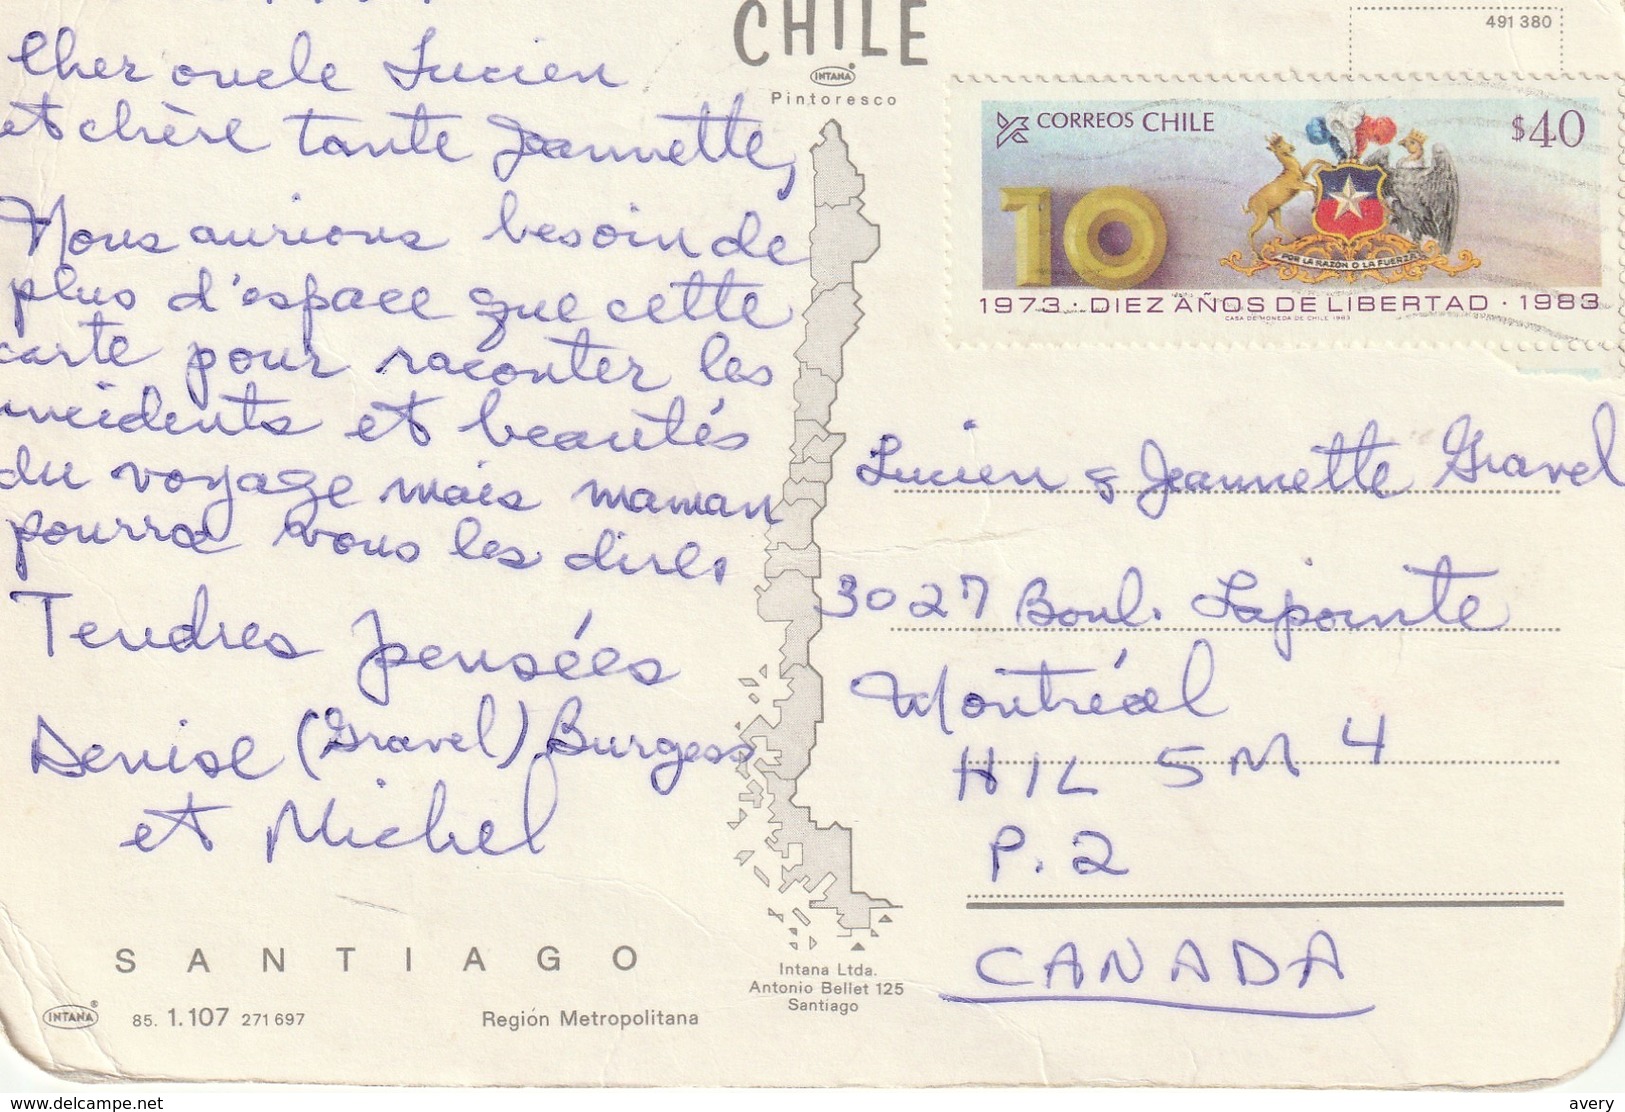 CHILE
INTANA
Pintoresco
491 380
CORREOS CHILE
$40
10
POR LA RAZÓN O LA FUERZA
1973 · DIEZ AÑOS DE LIBERTAD · 1983
CASA DE MONEDA DE CHILE 1983
Cher oncle Lucien
et chère tante Jeannette,
Nous aurions besoin de
plus d'espace que cette
carte pour raconter les
incidents et beautés
du voyage mais maman
pourra vous les dire.
Tendres pensées
Denise (Gravel) Burgess
et Michel
Lucien & Jeannette Gravel
3027 Boul. Lapointe
Montréal
H1L 5M4
P.2
CANADA
SANTIAGO
INTANA
85. 1.107 271 697
Región Metropolitana
Intana Ltda.
Antonio Bellet 125
Santiago
www.delcampe.net
avery